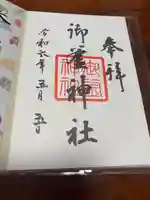 奉拝
御霊神社
令和六年五月五日